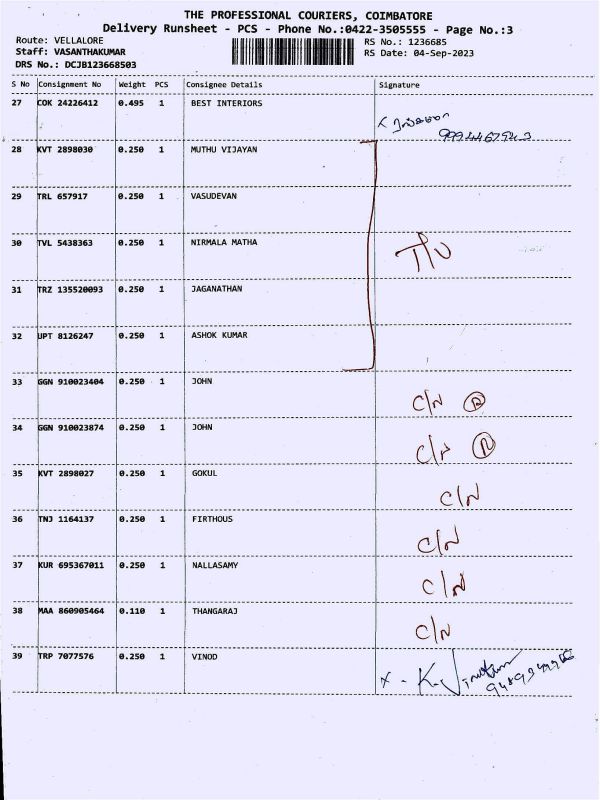 THE PROFESSIONAL COURIERS, COIMBATORE
Delivery Runsheet - PCS - Phone No.:0422-3505555 - Page No.:3
Route: VELLALORE RS No.: 1236685
Staff: VASANTHAKUMAR RS Date: 04-Sep-2023
DRS No.: DCJB123668503
S No Consignment No Weight PCS Consignee Details Signature
27 COK 24226412 0.495 1 BEST INTERIORS
28 KVT 2898030 0.250 1 MUTHU VIJAYAN
29 TRL 657917 0.250 1 VASUDEVAN
30 TVL 5438363 0.250 1 NIRMALA MATHA T/U
31 TRZ 135520093 0.250 1 JAGANATHAN
32 UPT 8126247 0.250 1 ASHOK KUMAR
33 GGN 910023404 0.250 1 JOHN C/N R
34 GGN 910023874 0.250 1 JOHN C/N R
35 KVT 2898027 0.250 1 GOKUL C/N
36 TNJ 1164137 0.250 1 FIRTHOUS C/N
37 KUR 695367011 0.250 1 NALLASAMY C/N
38 MAA 860905464 0.110 1 THANGARAJ C/N
39 TRP 7077576 0.250 1 VINOD